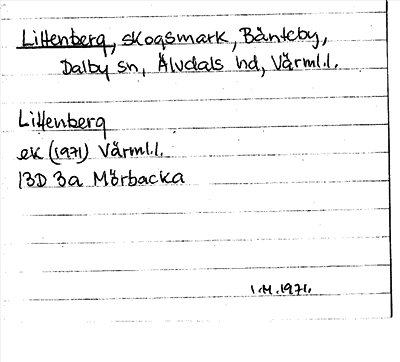 Littenberg, skogsmark, Bänteby,
Dalby sn, Älvdals hd, Värml.l.
Littenberg
ek (1971) Värml.l.
13D 3a Mörbacka
1.M.1971.